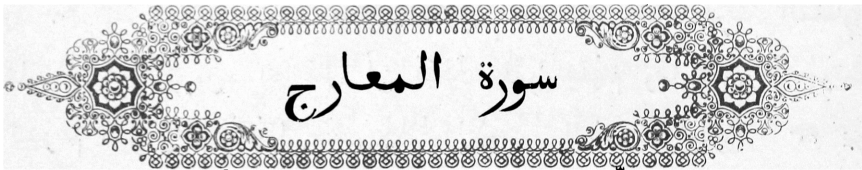 سورة المعارج